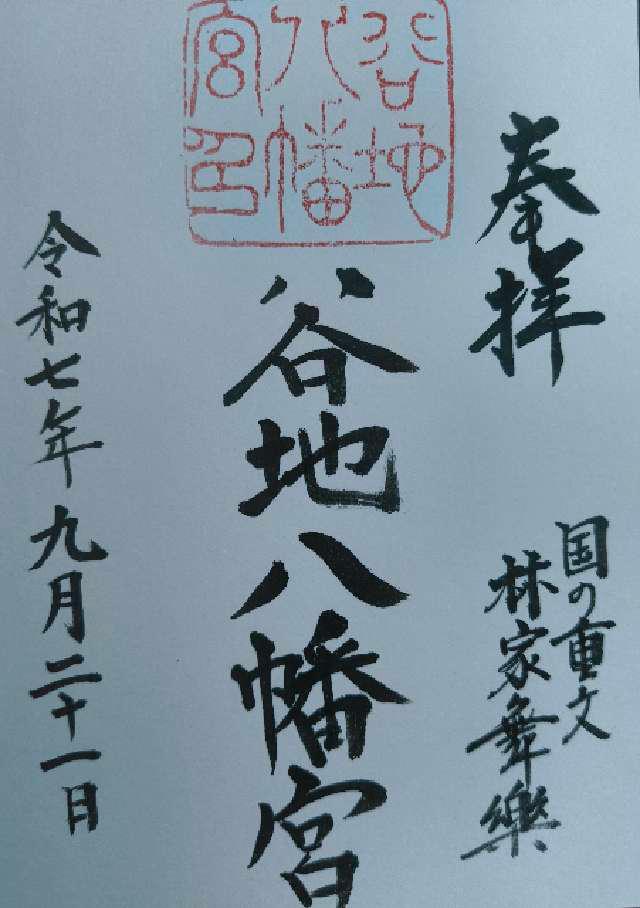 奉拝
国の重文
林家舞樂
谷地
八幡
宮印
谷地八幡宮
令和七年九月二十一日